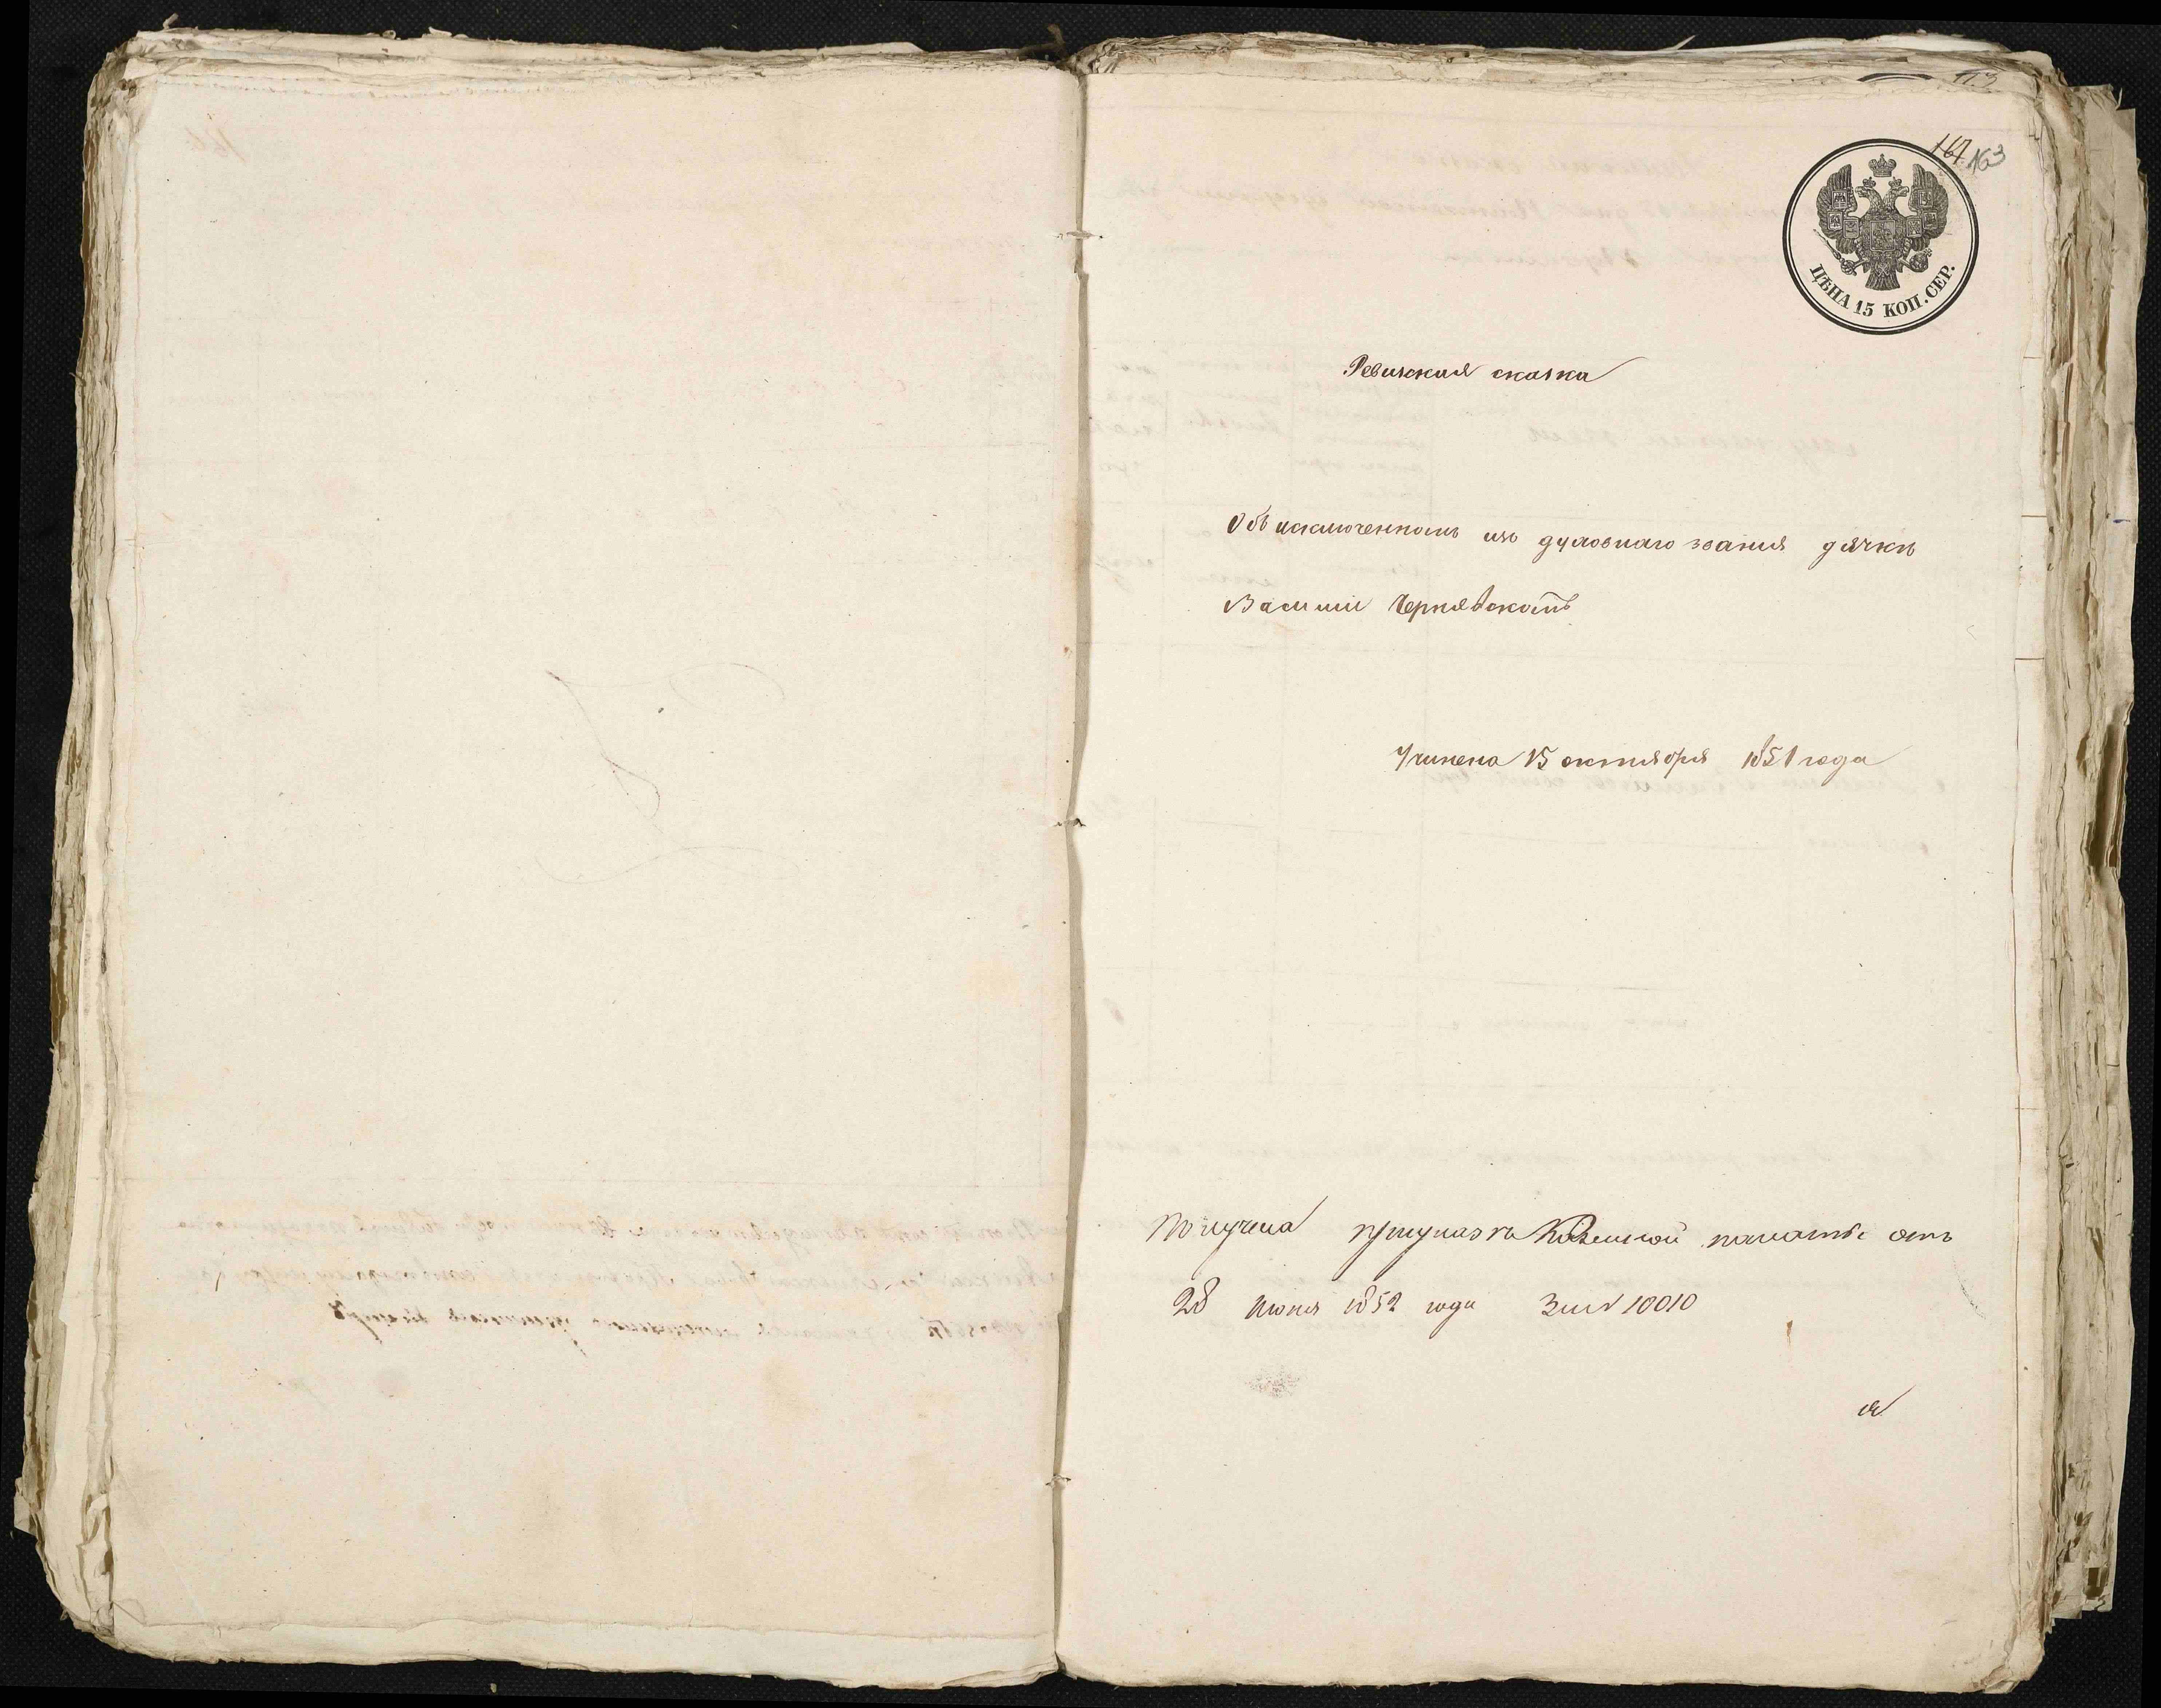 113
164 163
ЦѢНА 15 КОП. СЕР.
Ревизская сказка
Объ изключенномъ изъ духовнаго звания дячкѣ
Василіи Чернявскомъ
Учинена 15 октября 1851 года
Получена при указѣ Казенной палаты отъ
28 июня 1852 года За № 10010